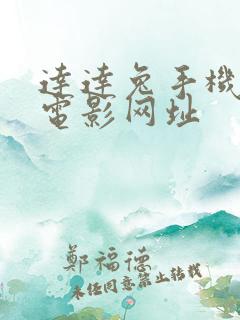 達達兔手機
電影网址
鄭福德
未经同意禁止转载